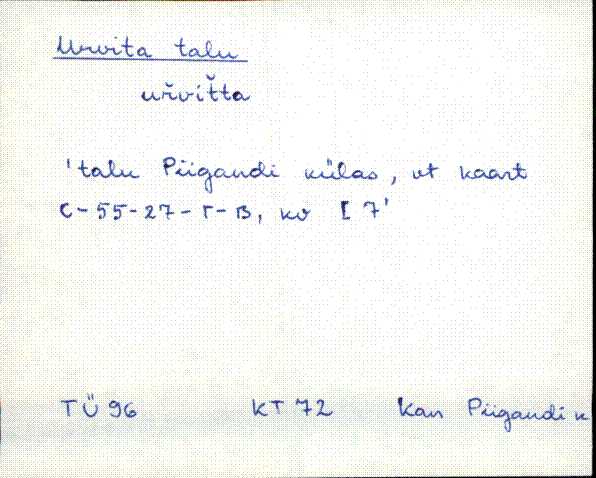 Urvita talu
uřvit̆ta
'talu Piigandi külas, vt kaart
C-55-27-Г-В, kv I 7'
TÜ 96 KT 72 Kan Piigandi k